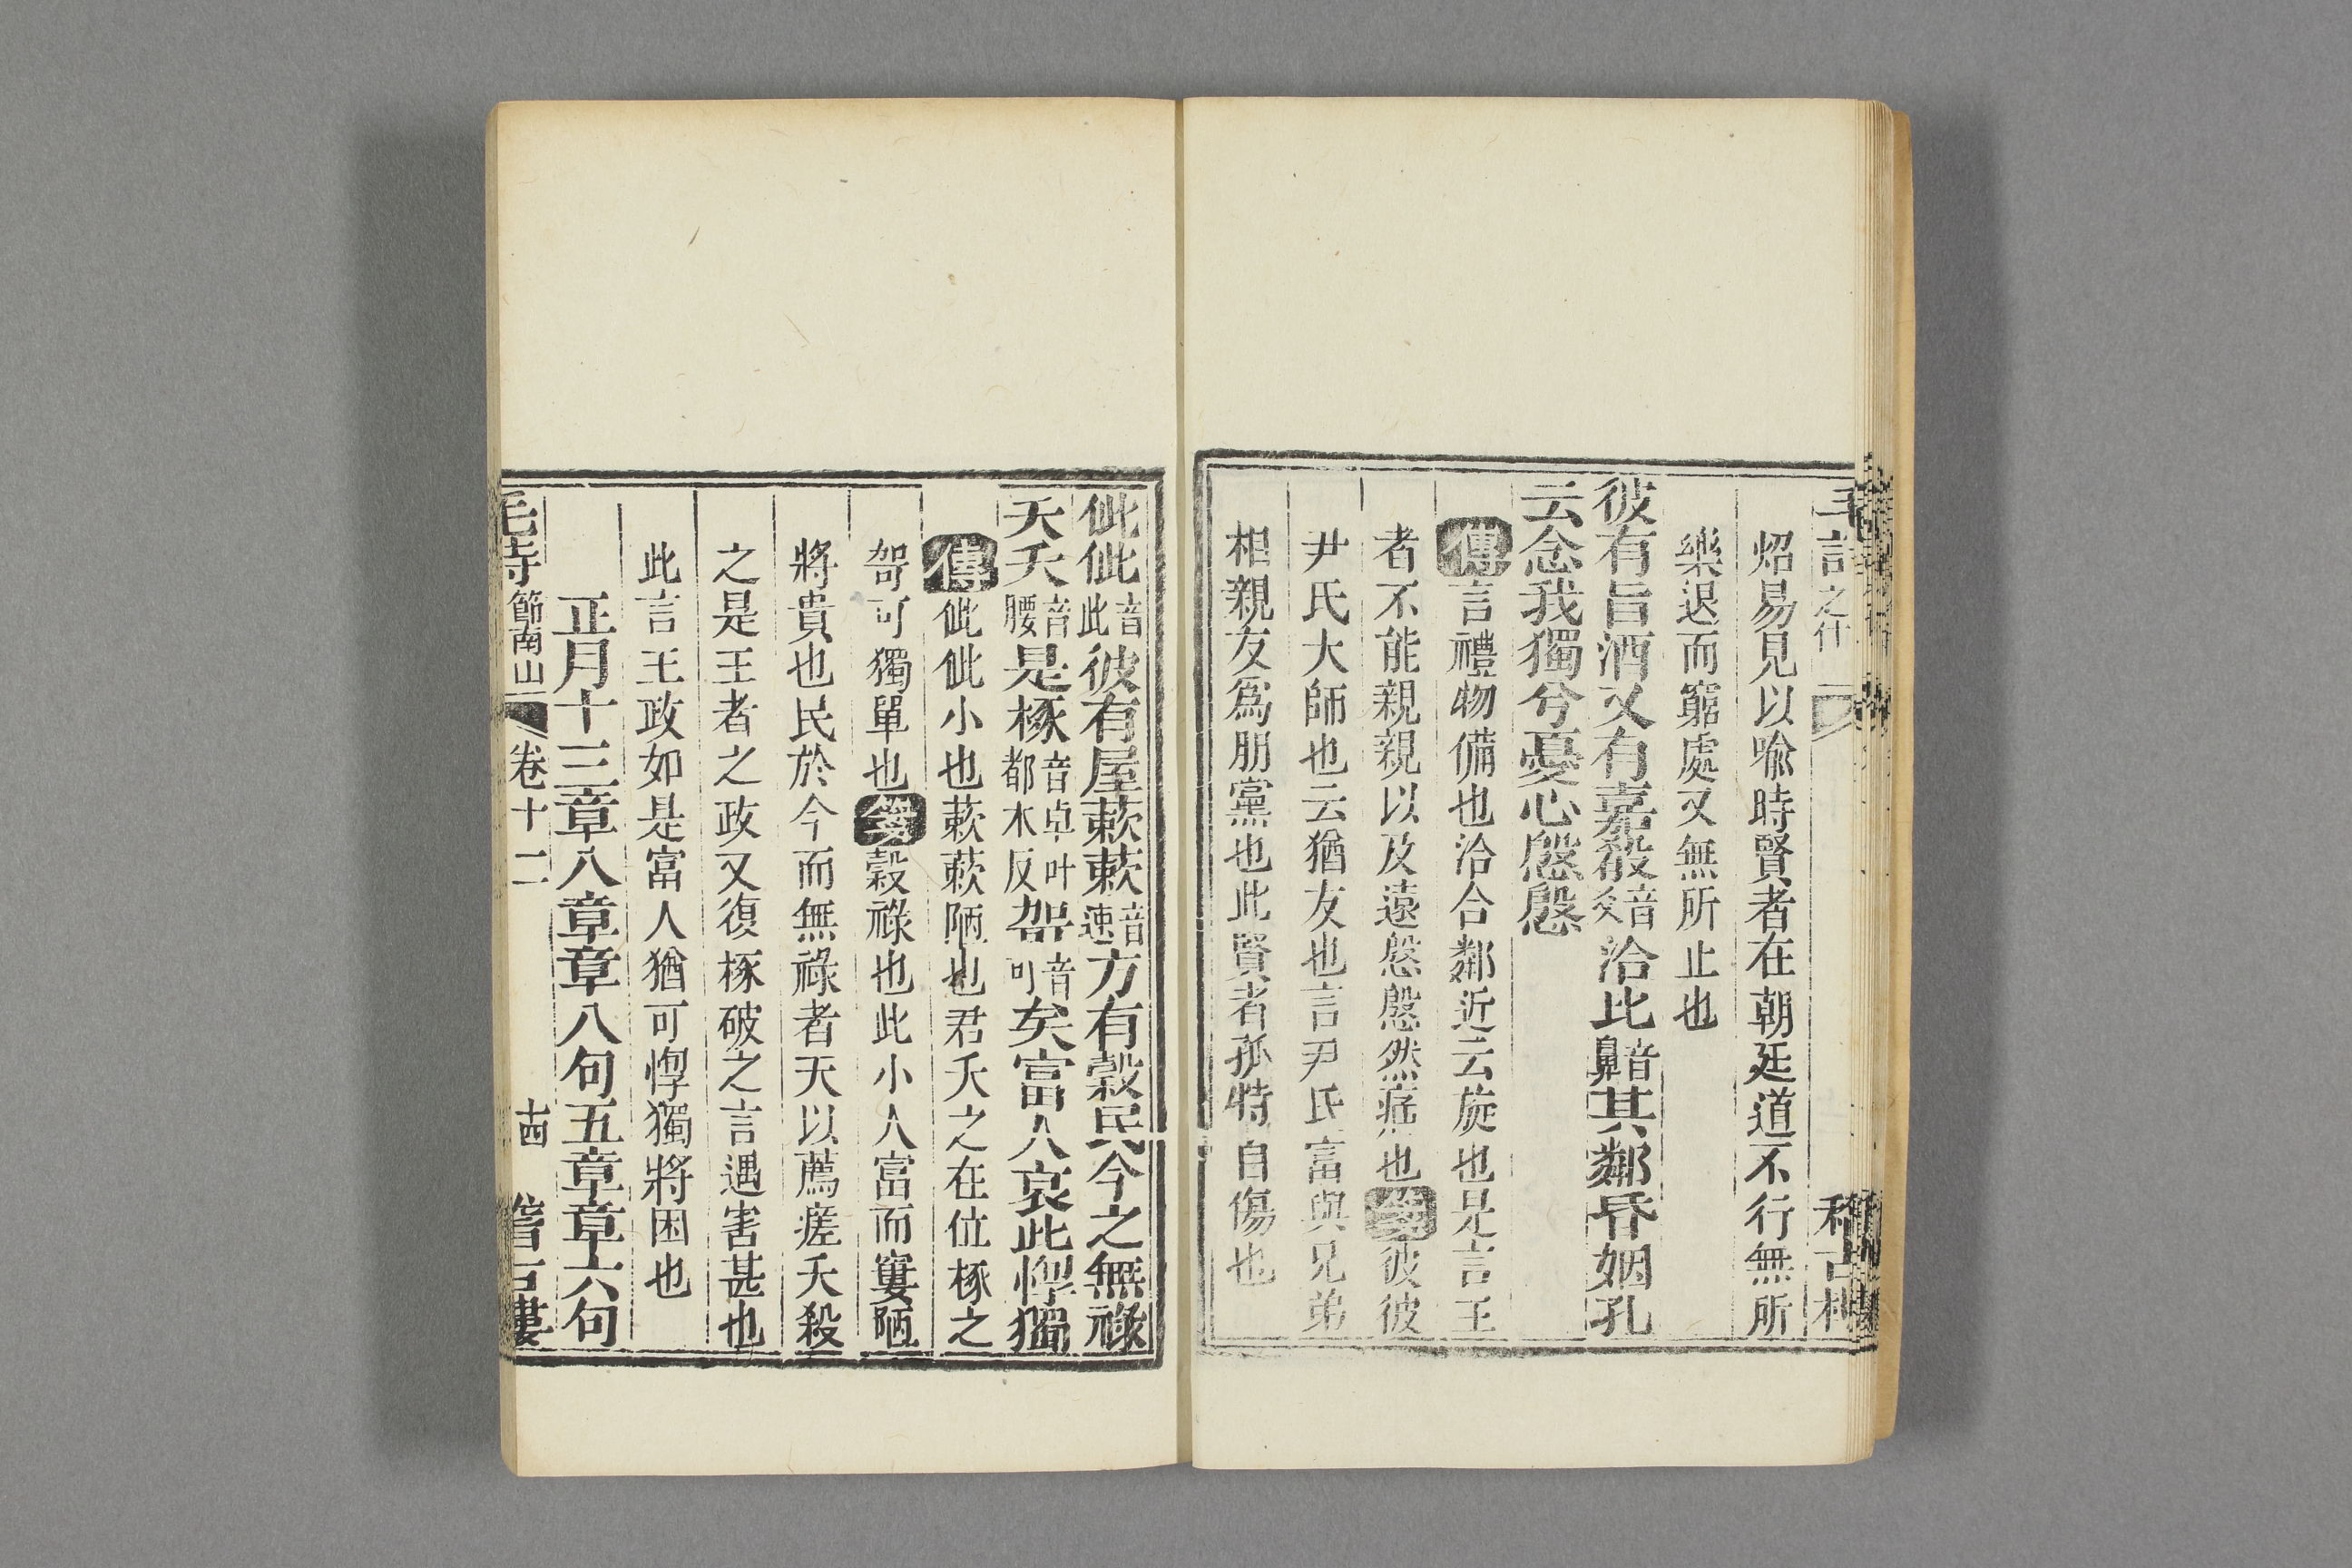 炤易見以喻時賢者在朝廷道不行無所
樂退而窮處又無所止也
彼有旨酒又有嘉殽音爻洽比音鼻其鄰昏姻孔
云念我獨兮憂心慇慇
傳言禮物備也洽合鄰近云旋也是言王
者不能親親以及遠慇慇然痛也箋彼彼
尹氏大師也云猶友也言尹氏富與兄弟
相親友爲朋黨也此賢者孤特自傷也
佌佌音此彼有屋蔌蔌音速方有穀民今之無祿
天夭音腰是椓音卓叶都木反哿音可矣富人哀此惸獨
傳佌佌小也蔌蔌陋也君夭之在位椓之
哿可獨單也箋穀祿也此小人富而窶陋
將貴也民於今而無祿者天以薦瘥夭殺
之是王者之政又復椓破之言遇害甚也
此言王政如是富人猶可惸獨將困也
正月十三章八章章八句五章章六句
毛寺 節南山 卷十二 十四